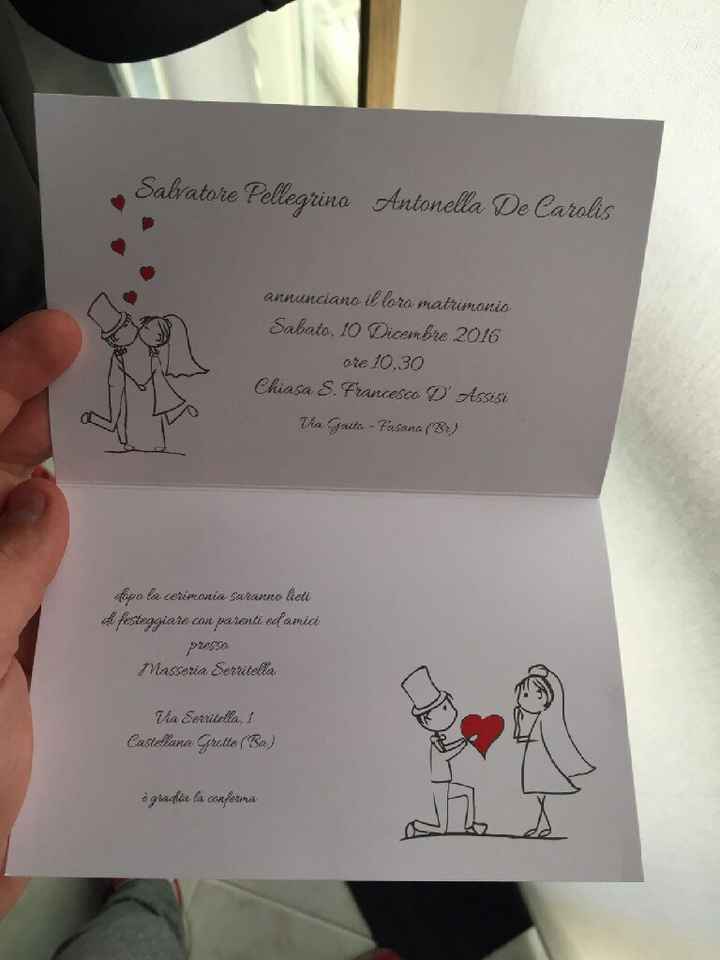 Salvatore Pellegrino Antonella De Carolis
annunciano il loro matrimonio
Sabato, 10 Dicembre 2016
ore 10,30
Chiasa S. Francesco D' Assisi
Via Gaito - Fasano (Br)
dopo la cerimonia saranno lieti
di festeggiare con parenti ed amici
presso
Masseria Serritella
Via Serritella, 1
Castellana Grotte (Ba)
è gradita la conferma